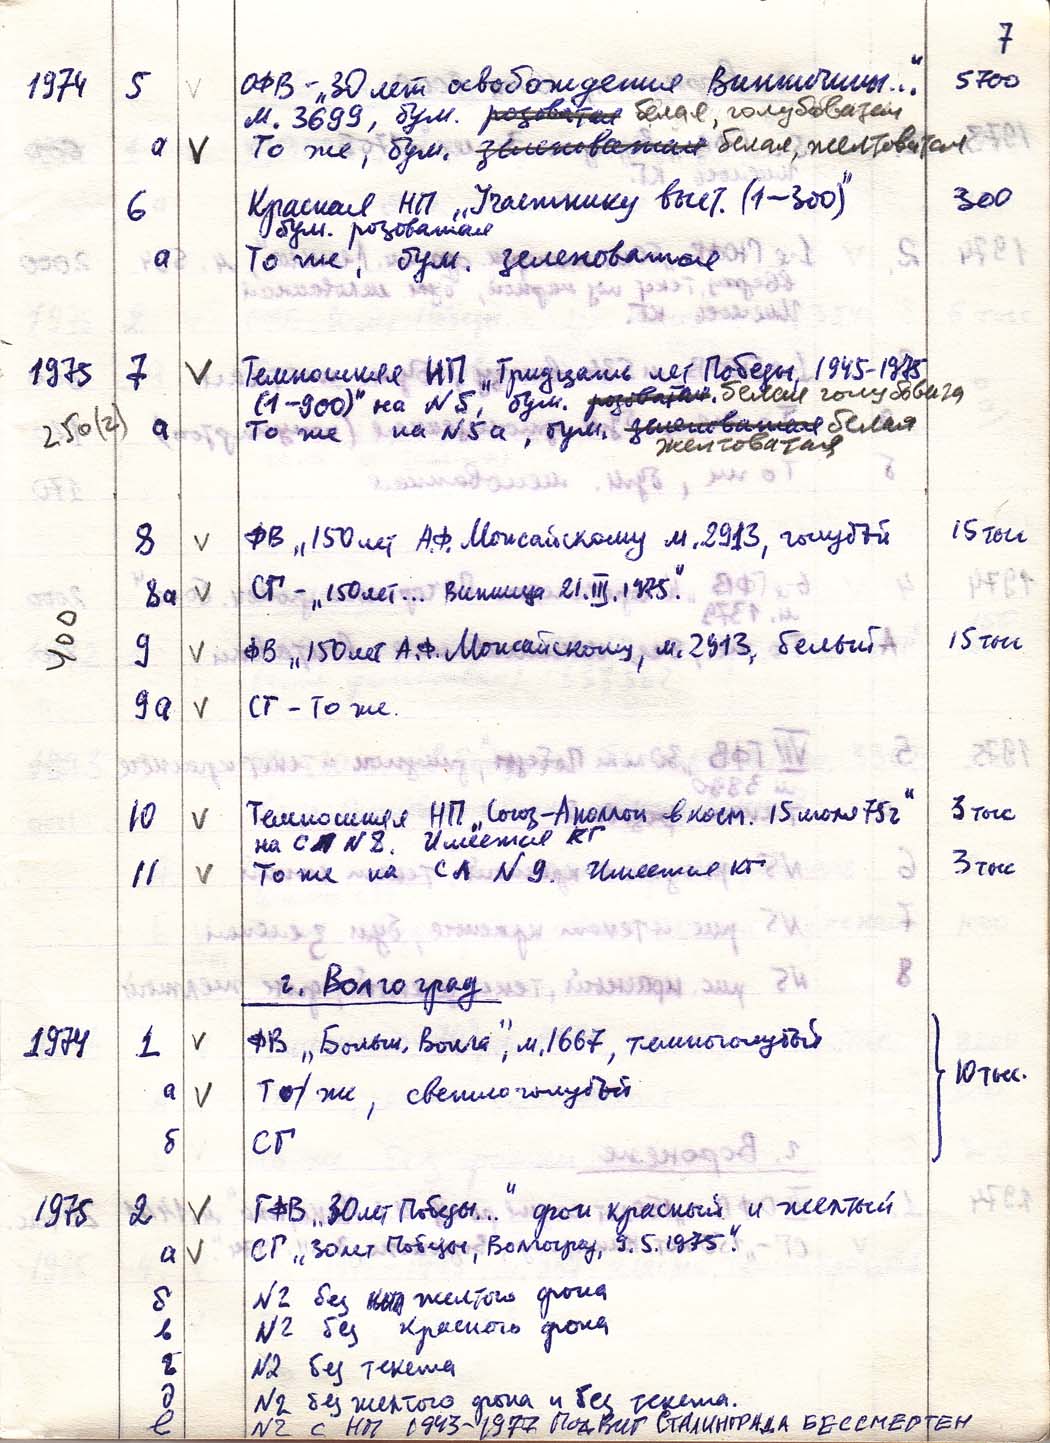 7
1974 5 V ОФВ - „30 лет освобождения Винничины..." 5700
м. 3699, бум. розоватая белая, голубоватая
а V То же, бум. зеленоватая белая, желтоватая
6 Красная НП „Участнику выст. (1-300)" 300
бум. розоватая
а То же, бум. зеленоватая
1975 7 V Темносиняя НП „Тридцать лет Победы, 1945-1975
(1-900)" на N5, бум. розоватая. белая голубовата
250(2) а То же на N5а, бум. зеленоватая белая
желтоватая
8 V ФВ „150 лет А.Ф. Можайскому м.2913, голубой 15 тыс
8а V СГ - „150 лет... Винница 21.III.1975".
400
9 V ФВ „150 лет А.Ф. Можайскому, м.2913, белый 15 тыс
9а V СГ - То же.
10 V Темносиняя НП „Союз-Аполлон в косм. 15 июля 75г" 3 тыс
на СЛ N 8. Имеется КГ
11 V То же на СЛ N 9. Имеется КГ 3 тыс
г. Волгоград
1974 1 V ФВ „Больш. Волга", м.1667, темноголубый
а V То же, светлоголубый 10 тыс.
б СГ
1975 2 V ГФВ „30 лет Победы..." фон красный и желтый
а V СГ „30 лет Победы, Волгоград, 9.5.1975".
б N2 без желтого фона
в N2 без красного фона
г N2 без текста
д N2 без желтого фона и без текста.
е N2 с НП 1943-1977 ПОДВИГ СТАЛИНГРАДА БЕССМЕРТЕН